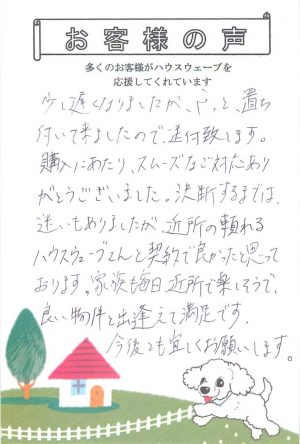 お客様の声
多くのお客様がハウスウェーブを
応援してくれています
少し遅くなりましたが、やっと、落ち
付いて来ましたので、送付致します。
購入にあたり、スムーズなご対応あり
がとうございました。決断するまでは、
迷いもありましたが、近所の頼れる
ハウスウェーブさんと契約で良かったと思って
おります。家族も毎日、近所で楽しそうで、
良い物件と出逢えて満足です。
今後とも宜しくお願いします。